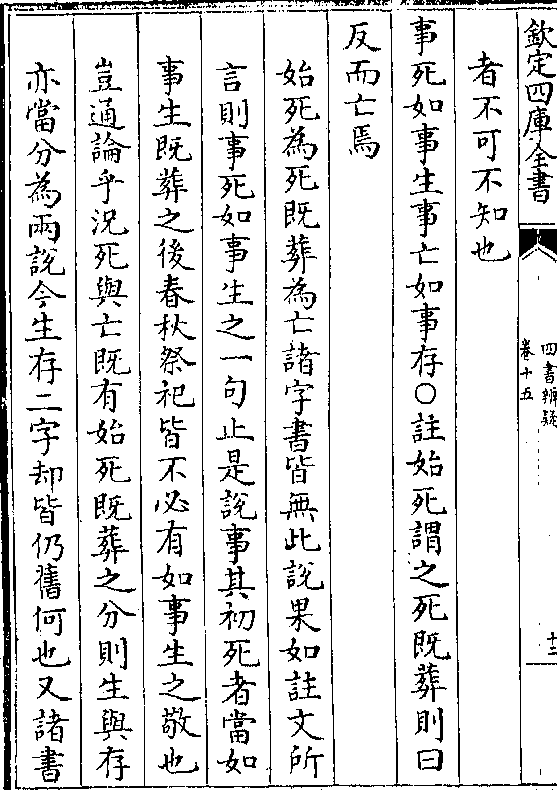 欽定四庫全書
四書辨疑
卷十五
十二
者不可不知也
事死如事生事亡如事存○註始死謂之死既葬則曰
反而亡焉
始死為死既葬為亡諸字書皆無此說果如註文所
言則事死如事生之一句止是說事其初死者當如
事生既葬之後春秋祭祀皆不必有如事生之敬也
豈通論乎況死與亡既有始死既葬之分則生與存
亦當分為兩說今生存二字却皆仍舊何也又諸書